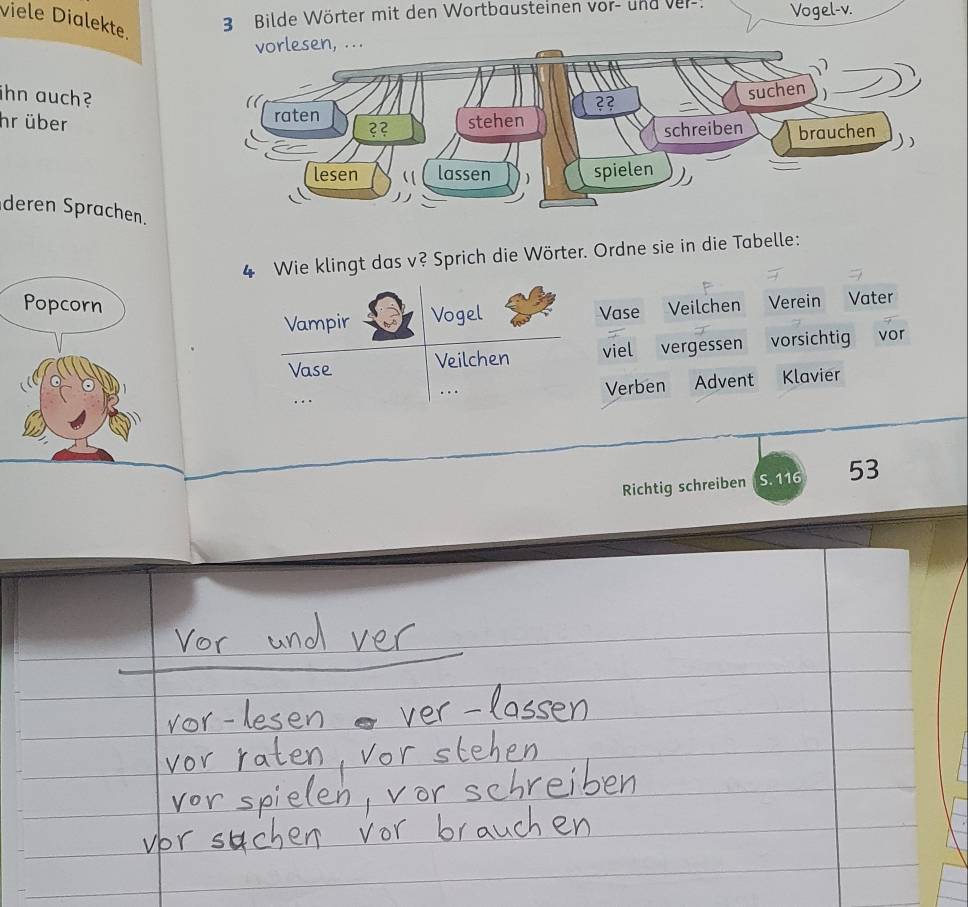 viele Dialekte.
3 Bilde Wörter mit den Wortbausteinen vor- und ver-:
Vogel-v.
vorlesen, ...
ihn auch?
hr über
raten
??
stehen
??
suchen
schreiben
brauchen
lesen
lassen
spielen
deren Sprachen.
4 Wie klingt das v? Sprich die Wörter. Ordne sie in die Tabelle:
Popcorn
Vampir Vogel
Vase Veilchen
... ...
Vase Veilchen Verein Vater
viel vergessen vorsichtig vor
Verben Advent Klavier
Richtig schreiben S. 116 53
vor und ver
vor-lesen ver-lassen
vor raten, vor stehen
vor spielen, vor schreiben
vor suchen vor brauchen